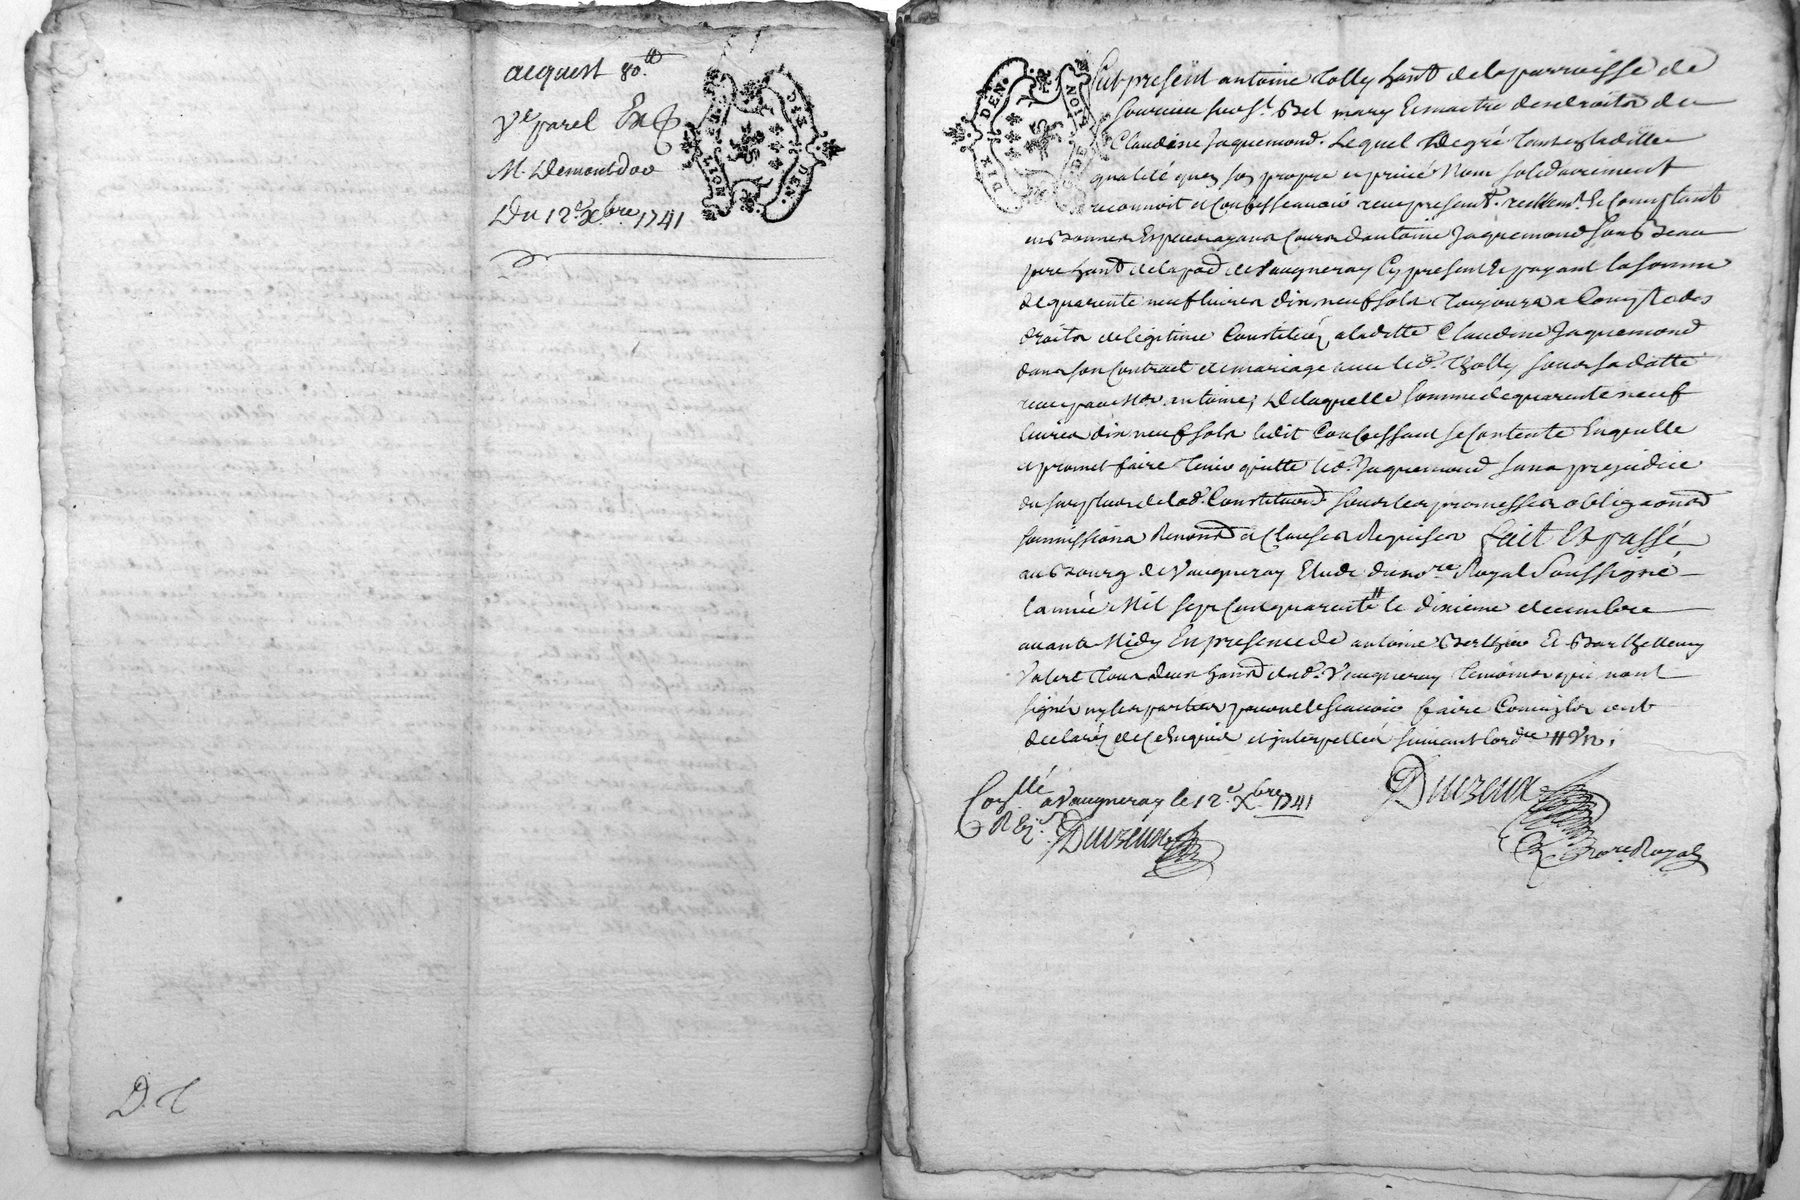 acquest 80.tt
Ve parel
M. Demontdor
Du 12e Xbre 1741
D. T
Fut présent antoine Tolly hant de la parroisse de
sourcieu sur St. Bel mary et maitre des droits de
Claudine Jaquemond. Lequel de gré tant en laditte
qualité qu'en son propre et privé nom solidairement
reconnoit et confesse avoir receu présentt. reellemt. et comptant
en bonnes espèces ayans cours d'antoine Jaquemond son beau
pere hant de la pad de Vaugneray cy present et payant la somme
de quarente neuf livres dix neuf sols toujours a compte des
droits de legitime constitués a laditte Claudine Jaquemond
dans son contract de mariage avec led. Tholly sous sa datte
receu par Me. antoine, de laquelle somme de quarente neuf
livres dix neuf sols ledit confessant se contente en quitte
et promet faire tenir quitte led. Jaquemond sans prejudice
du surplus de lad. constitution sous les promesses obligaons
soumissions renons et clauses requises fait et passé
au bourg de Vaugneray etude du nore Royal soussigné
l'année mil sept cent quarente le dixieme decembre
avant midy en presence de antoine Berthier et Barthellemy
tous deux hans dud. Vaugneray temoins qui n'ont
signé ny les parties pour ne le scavoir faire comm'ils ont
declarés de ce enquis et interpellés suivant l'ordce
Conllé a Vaugneray le 12e Xbre 1741
nore Royal